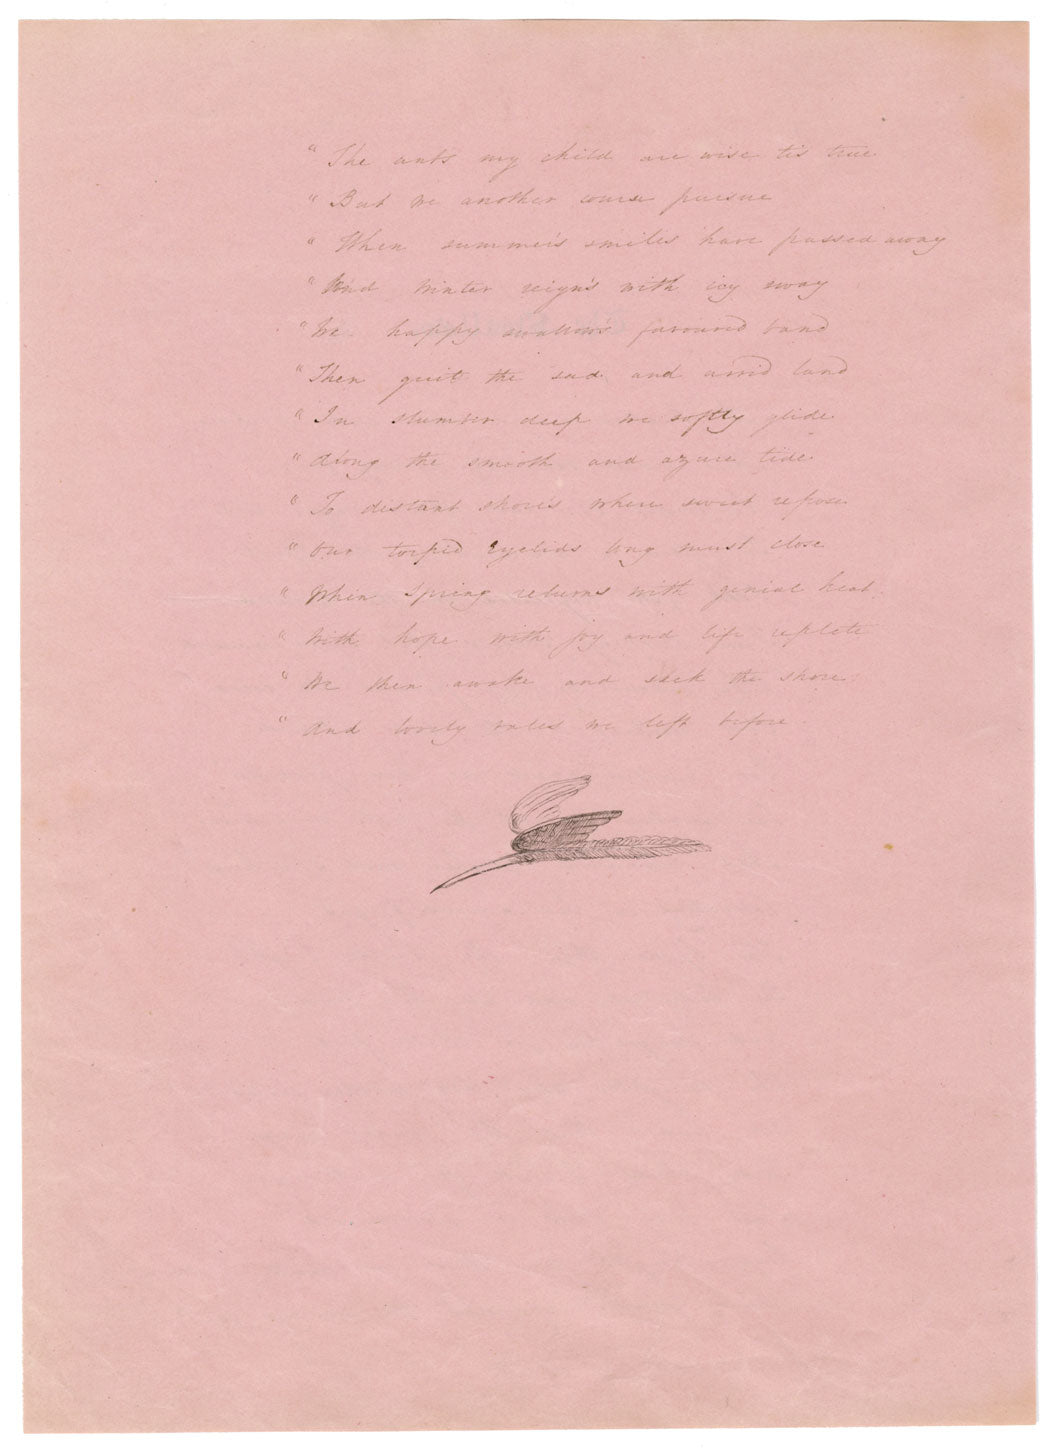 " The ants my child are wise tis true
" But we another course pursue
" When summer's smiles have passed away
" And Winter reign's with icy sway
" We happy swallow's favoured band
" Then quit the sad and arrid land
" In slumber deep we softly glide
" Along the smooth and azure tide
" To distant shore's where sweet repose
" Our torpid Eyelids long must close
" When Spring returns with genial heat
" With hope with joy and life replete
" We then awake and seek the shore
" And lovely vales we left before.